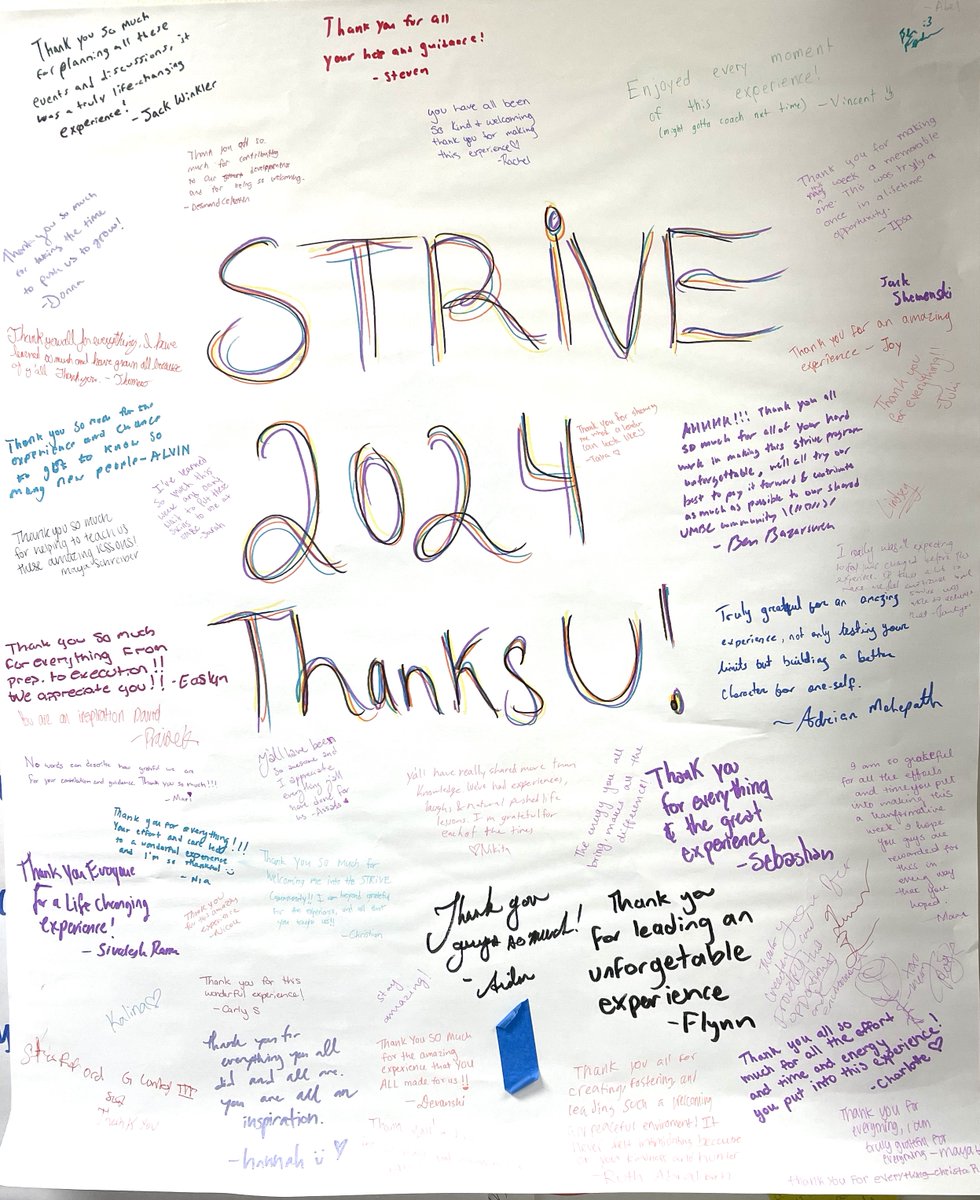 Thank you so much
for planning all these
events and discussions, it
was a truly life-changing
experience!
- Jack Winkler
Thank you for all
your help and guidance!
- Steven
- Abel
:3
Enjoyed every moment
of this experience!
(might gotta coach next time) - Vincent
you have all been
so kind & welcoming
thank you for making
this experience ♡
-Rachel
Thank you all so
much for contributing
to our development
and for being so welcoming.
Thank you for making
this week a memorable
one. This was truly a
once in a lifetime
opportunity.
- Ipsa
Thank you so much
for taking the time
to push us to grow!
-Donna
STRIVE
2024
Thanks U!
Jack
Shemenski
Thank you for an amazing
experience - Joy
Thank you
for everything!!
Julia
Thank you all for everything, I have
learned so much and have grown all because
of y'all. Thank you. -
Thank you so much for the
experience and chance
to get to know so
many new people - ALVIN
I've learned
so much this
week and
Sarah
Thank you for showing
me what a leader
can look like!
AHHHH!!! Thank you all
so much for all of your hard
work in making this strive program
unforgettable, we'll all try our
best to pay it forward & contribute
as much as possible to our shared
UMBC community
- Ben Bazarsuren
Lindsey
Thank you so much
for helping to teach us
these amazing lessons!
Maya Schreiber
I really wasn't expecting
Truly grateful for an amazing
experience, not only testing your
limits but building a better
character for one-self.
~ Adrian Mahepath
Thank you so much
for everything from
prep. to execution!!
We appreciate you!! - Easlyn
You are an inspiration David
No words can describe how grateful we are
for your and guidance. Thank you so much!!!
Y'all have been
so awesome and
I appreciate
everything y'all
have done for
us
y'all have really shared more than
knowledge. We've had experiences,
laughs, & natural pushed life
lessons I'm grateful for
each of the times
♡ Nikita
The energy you all
bring makes all the
difference!
Thank you
for everything
& the great
experience
-Sebastian
I am so grateful
for all the efforts
and time you put
into making this
a transformative
week. I hope
you guys are
rewarded for
this in
every way
that you
hoped.
Thank you for everything!!!
Your effort and care lead
to a wonderful experience
and I'm so thankful
- Nia
Thank you so much for
welcoming me into the STRIVE
community!! I am beyond grateful
for the experience, and all that
you taught us!!
- Christian
Thank You Everyone
For a Life Changing
Experience!
Thank you
for this amazing
experience
-Nicole
Thank you
guys so much!
- Aidan
Thank you
for leading an
unforgettable
experience
-Flynn
Kalina ♡
Thank you for this
wonderful experience!
- Carly S
stay
amazing!
Thank you for
everything you all
did and all are.
you are all an
inspiration.
-hannah ♡
Thank You SO Much
for the amazing
experience that you
ALL made for us!!
- Devanshi
Thank you all for
creating, fostering and
leading such a welcoming
and peaceful environment! It
Thank you all so
much for all the effort
and time and energy
you put into this experience!
-Charlotte ♡
Thank you for
everything, I am
truly grateful for
everything - Maya
thank you for everything -Christa